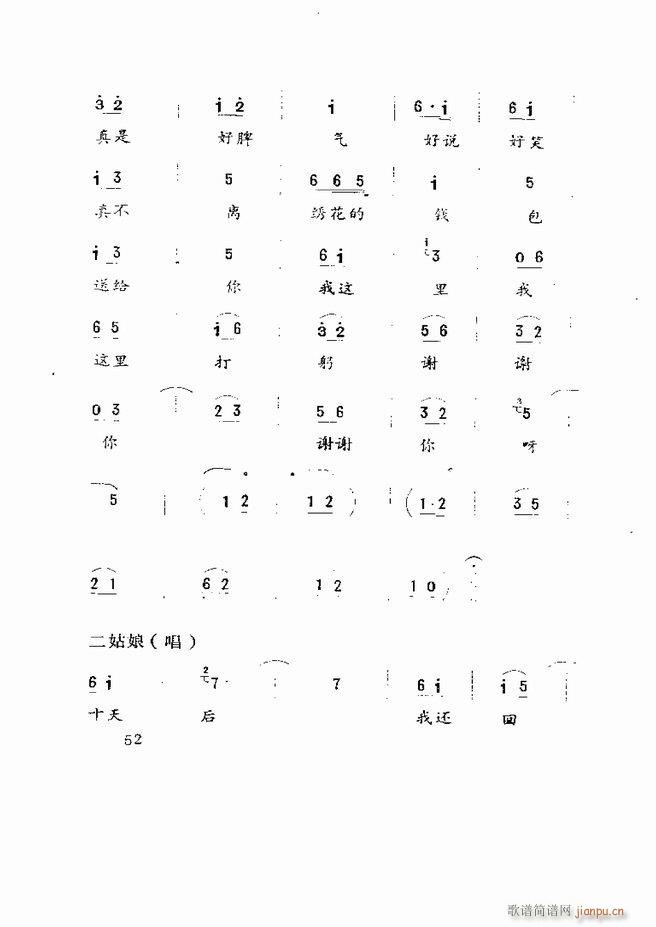 3 2 | 1 2 | 1 | 6·1 | 6 1
真是 好脾 气 好说 好笑
1 3 5 6 6 5 1 5
卖不 离 绣花的 钱 包
1 3 5 6 1 3 0 6
送给 你 我这 里 我
6 5 1 6 3 2 5 6 3 2
这里 打 躬 谢 谢
0 3 2 3 5 6 3 2 5
你 谢谢 你 呀
5 | ( 1 2 | 1 2 ) | (1·2 | 3 5
2 1 6 2 1 2 1 0
二姑娘(唱)
6 1 7· 7 6 1 1 5
十天 后 我还 回
52
歌谱简谱网 jianpu.cn